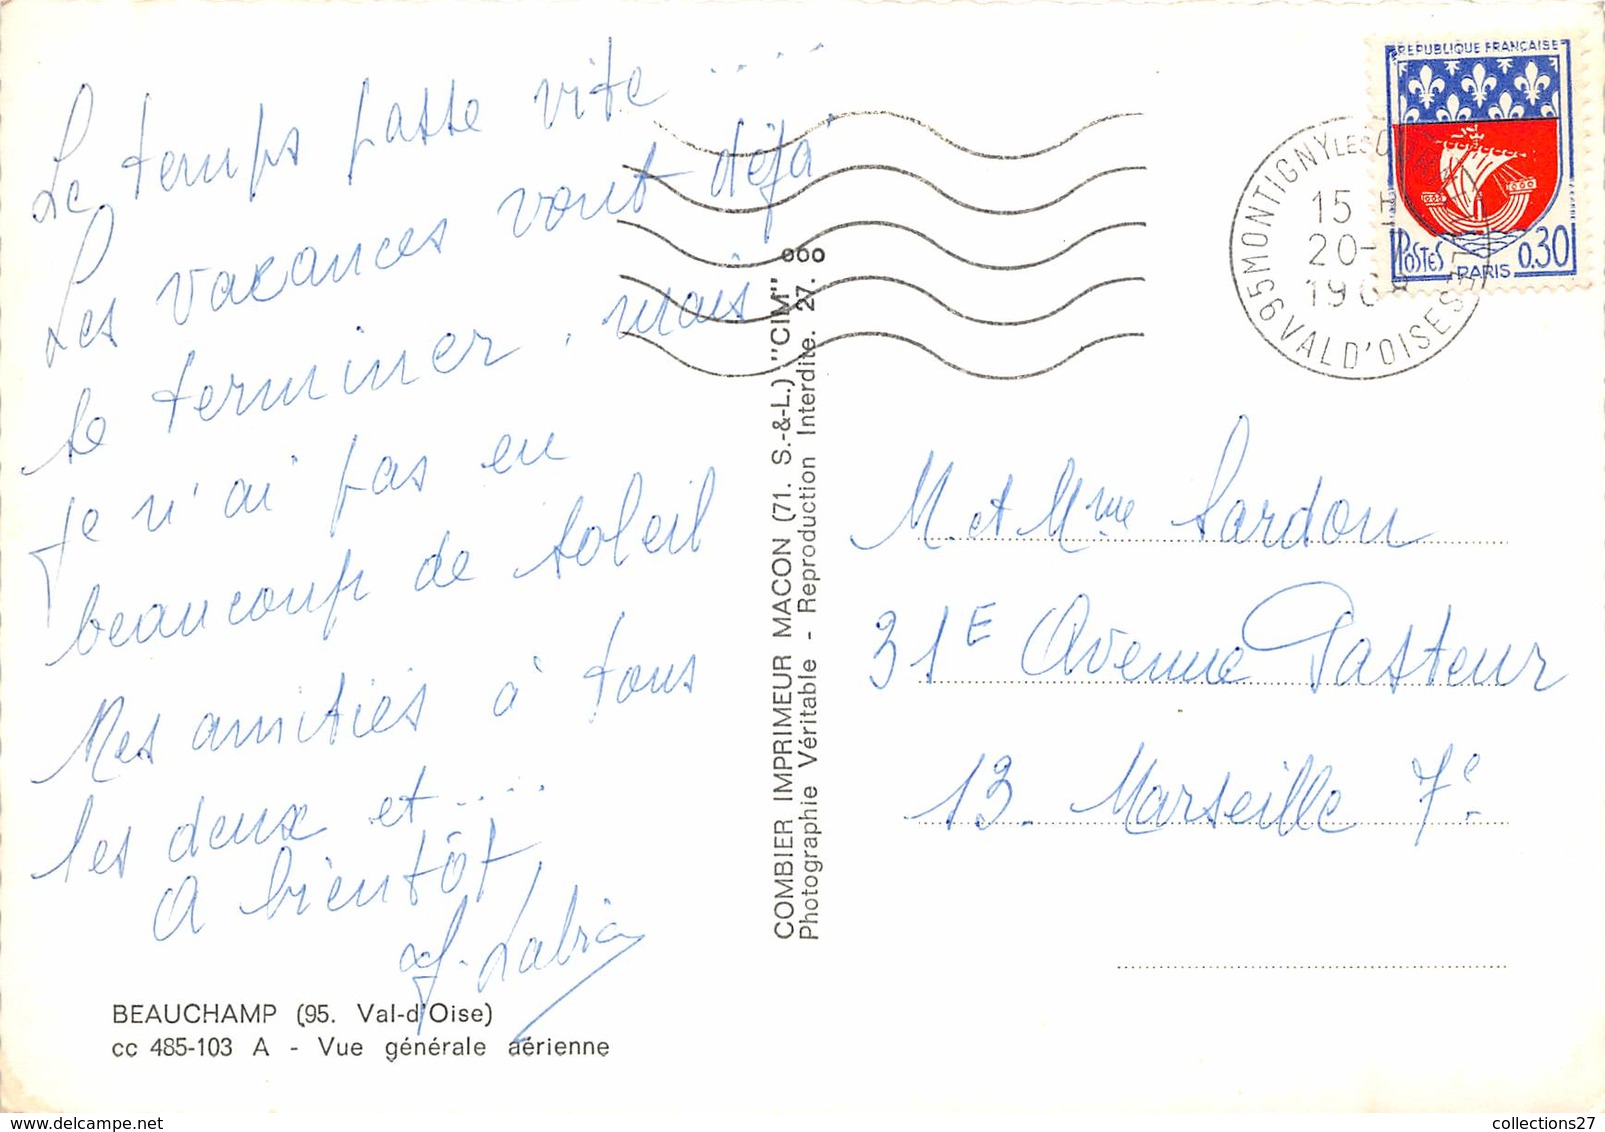 Le temps passe vite ....
Les vacances vont déjà
se terminer, mais
je n'ai pas eu
beaucoup de soleil
Mes amitiés à tous
les deux et ....
A bientôt
BEAUCHAMP (95. Val-d'Oise)
cc 485-103 A - Vue générale aérienne
COMBIER IMPRIMEUR MACON (71. S.-&-L.) "CIM" ooo
Photographie Véritable - Reproduction Interdite. 27.
REPUBLIQUE FRANÇAISE
POSTES PARIS 0,30
95 MONTIGNY LES
15 H
20-
196
VAL D'OISE
M. et Mme Sardou
31E Avenue Pasteur
13. Marseille 7e.
collections27